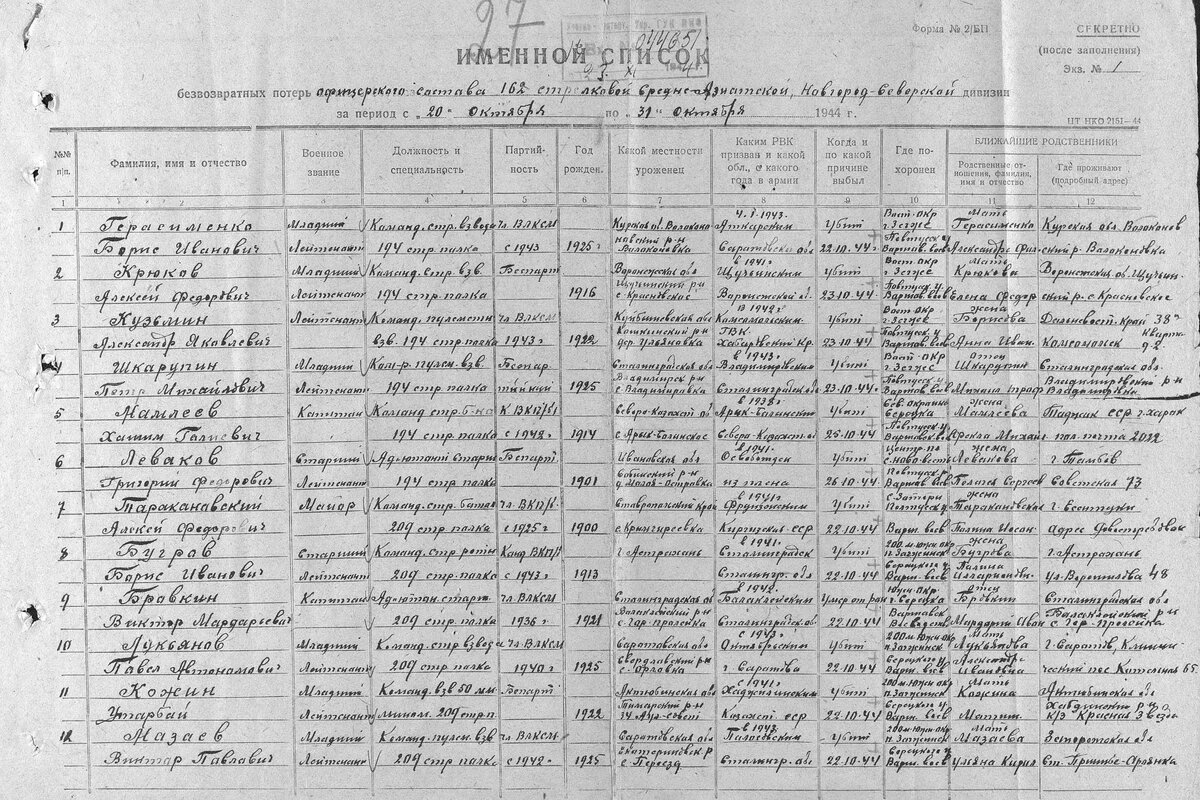 27
044651
Форма № 2/БП
СЕКРЕТНО
(после заполнения)
Экз. № 1
ИМЕННОЙ СПИСОК
безвозвратных потерь офицерского состава 162 стрелковой Средне-Азиатской, Новгород-Северской дивизии
за период с „20“ октября по „31“ октября 1944 г.
ЦТ НКО 2151—44
№№ п/п. Фамилия, имя и отчество Военное звание Должность и специальность Партийность Год рожден. Какой местности уроженец Каким РВК призван и какой обл., с какого года в армии Когда и по какой причине выбыл Где похоронен БЛИЖАЙШИЕ РОДСТВЕННИКИ
Родственные отношения, фамилия, имя и отчество Где проживают (подробный адрес)
1 2 3 4 5 6 7 8 9 10 11 12
1 Герасименко Младший Команд. стр. взвода чл. ВЛКСМ Курская об. Волоконовский р-н Ч. I-1943. Аткарским Убит Вост. окр. г. Згеже Мать Герасименко Курская обл. Волоконов
Борис Иванович Лейтенант 194 стр. полка с 1943 1925 г Волоконовка Саратовска об 22.10.44 Повтуск. у. Варшав. воев Александра ский р. Волоконовка
2 Крюков Младший Команд. стр. взв. Беспарт Воронежская об в 1941 г Щучьинским Убит Вост. окр г. Згеже Мать Крюкова Воронежская об. Щучьин
Алексей Федорович Лейтенант 194 стр. полка 1916 Щучинский р-н с Красновское Воронежской об. 23.10.44 Повтуск. у Варшав. воев Елена Федор ский р. с Красновское
3 Кузьмин Лейтенант Команд. пулеметн чл. ВЛКСМ Куйбышевская об в 1942 г Комсомольским Убит Вост. окр г. Згеже жена Борисова Дальневост. край 38-
Александр Яковлевич взв. 194 стр. полка 1943 г 1922 Кошкинский р-н дер. Ульяновка ГВК Хабаровский кр. 23.10.44 Повтуск. у Варшав. воев Анна Иван. Комсомольск кварта 92
4 Шкарупин Младший Ком-р. пулем. взв. Беспар Сталинградская об в 1943 г. Владимировским Убит Вост. окр г. Згеже отец Шкарупин Сталинградская об.
Петр Михайлович Лейтенант 194 стр. полка тийный 1925 Владимирск р-н с Владимировка Сталинградской об 23.10.44 Повтуск. у Варшав. воев Михаил Троф Владимировский р-н Владимировка
5 Мамлеев Капитан Команд стр. б-на К ВКП/б/ Северо-Казахст об в 1938 г. Арык-Балыкским Убит Сев. окраина Сероцка жена Мамлеева Таджик ССР г. Харак
Хатим Галиевич 194 стр. полка с 1942 г 1914 с. Арык-Балыкское Северо-Казахст об 25.10.44 Повтуск у Варшавск. воев Фекла Михайл пол. почта 2022
6 Леваков Старший Адъютант старш Беспарт Ивановская об в 1941. Освобожден Убит Центр. по с. Ново-весть жена Левакова г. Тамбов
Григорий Федорович Лейтенант 194 стр. полка 1901 Собинский р-н из плена 26.10.44 Повтуск р-н Варшав. воев Пелагея Сергеев Советская 73
7 Таракановский Майор Команд. стр. батал чл. ВКП/б Ставропольский край в 1941 г Фрунзенским Убит с. Затори Повтуск. у жена Таракановская г. Ессентуки
Алексей Федорович 209 стр. полка с 1925 г 1900 Киргизская ССР 22.10.44 Варш. воев Галина
8 Бугров Старший Команд. стр. роты Канд. ВКП/б г. Астрахань в 1941. Сталинградск Убит 200 м. Южн. окр п. Загжинск жена Бугрова г. Астрахань
Борис Иванович Лейтенант 209 стр. полка с 1943 г 1913 Сталингр. об 22-10-44 Сероцкого у Варш. воев Галина Илларионовн. ул. Ворошилова 48
9 Бравкин Капитан Адъютан. старш. чл. ВЛКСМ Сталинградская об в 1942. Балаклейским Умер от ран Южн. ок г Сероцка Отец Сталинградская об.
Виктор Мардарьевич 209 стр. полка 1936 г 1921 с. Гор-Пролейка Сталинградск. об 22.10.44 Варшавск. Воеводство Мардарий Иван Балаклейский р-н с. Гор-Пролейка
10 Лукьянов Младший Команд. стр. взвода чл. ВЛКСМ Саратовская об с 1943 г. Октябрьским Убит 200 м. Южн. окр п. Загжинск Мать Лукьянова г. Саратов,
Павел Автономович Лейтенант 209 стр. полка 1940 г 1925 Свердловский р-н с. Орловка г. Саратова 22.10.44 Сероцкого у Варш. воев Александра Ивановна ческий пос.
11 Кожин Младший Команд. взв 50 мм. Беспарт Актюбинская об с 1941 г Хабдинским Убит 200 м. Южн. окр п. Загжинск Мать Кожина Актюбинская об
Утарбай Лейтенант мином. 209 стр. п. 1922 14 Аул-совет Казахст. ССР 22.10.44 Сероцкого у Варш. воев Хабдинский р-н к/з Красная Звезда
12 Мазаев Младший Команд. пулем. взв чл. ВЛКСМ Саратовская об в 1943. Палласовским Убит 200 м. Южн. окр п. Загжинск Мать Мазаева
Виктор Павлович Лейтенант 209 стр. полка с 1942 г 1925 Екатериновск. р с Переезд Сталингр. об 22.10.44 Сероцкого у Варш. воев Ульяна Кирил